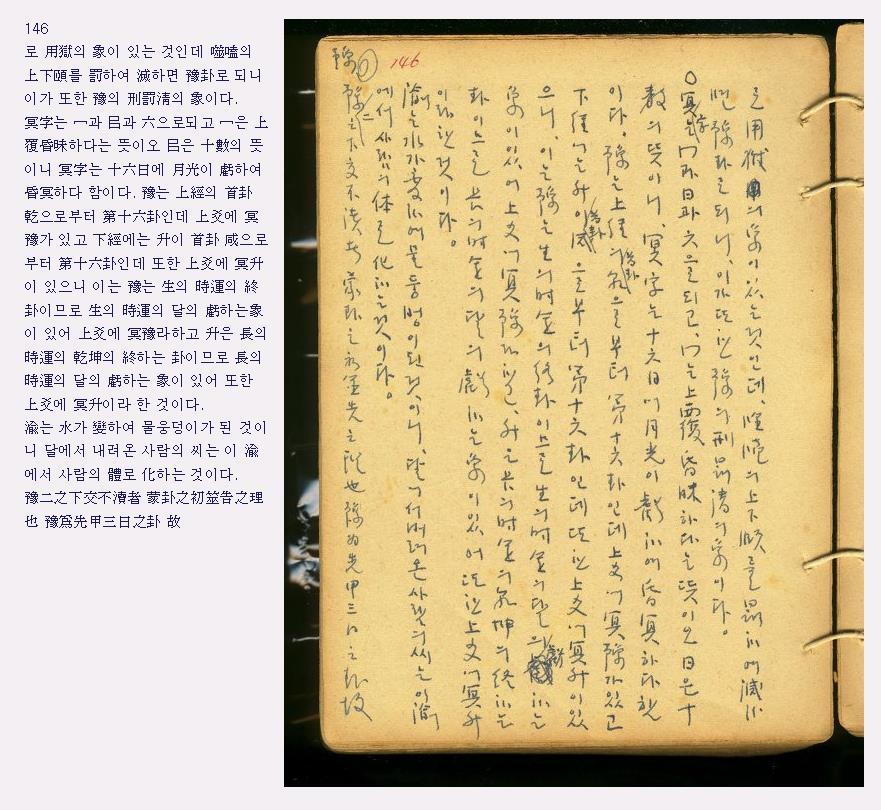 146
로 用獄의 象이 있는 것인데 噬嗑의
上下頤를 罰하여 滅하면 豫卦로 되니
이가 또한 豫의 刑罰淸의 象이다.
冥字는 冖과 日과 六으로되고 冖은 上
覆昏昧하다는 뜻이오 日은 十數의 뜻
이니 冥字는 十六日에 月光이 虧하여
昏冥하다 함이다. 豫는 上經의 首卦
乾으로부터 第十六卦인데 上爻에 冥
豫가 있고 下經에는 升이 首卦 咸으로
부터 第十六卦인데 또한 上爻에 冥升
이 있으니 이는 豫는 生의 時運의 終
卦이므로 生의 時運의 달의 虧하는象
이 있어 上爻에 冥豫라하고 升은 長의
時運의 乾坤의 終하는 卦이므로 長의
時運의 달의 虧하는 象이 있어 또한
上爻에 冥升이라 한 것이다.
渝는 水가 變하여 물웅덩이가 된 것이
니 달에서 내려온 사람의 씨는 이 渝
에서 사람의 體로 化하는 것이다.
豫二之下交不瀆者 蒙卦之初筮告之理
也 豫爲先甲三日之卦 故
豫 146
로 用獄의 象이 있는 것인데, 噬嗑의 上下頤를 罰하여 滅하
면 豫卦로 되니, 이가 또한 豫의 刑罰淸의 象이다.
○冥字는 冖과 日과 六으로 되고, 冖는 上覆昏昧하다는 뜻이오 日은 十
數의 뜻이니, 冥字는 十六日에 月光이 虧하여 昏冥하다 함
이다. 豫는 上經의 首卦 乾으로부터 第十六卦인데 上爻에 冥豫가 있고
下經에는 升이 首卦 咸으로부터 第十六卦인데 또한 上爻에 冥升이 있
으니, 이는 豫는 生의 時運의 終卦이므로 生의 時運의 달의 虧하는
象이 있어 上爻에 冥豫라 하고, 升은 長의 時運의 乾坤의 終하는
卦이므로 長의 時運의 달의 虧하는 象이 있어 또한 上爻에 冥升
이라 한 것이다.
渝는 水가 變하여 물웅덩이가 된 것이니, 달에서 내려온 사람의 씨는 이 渝
에서 사람의 体로 化하는 것이다.
豫二之下交不瀆者 蒙卦之初筮告之理也 豫爲先甲三日之卦 故